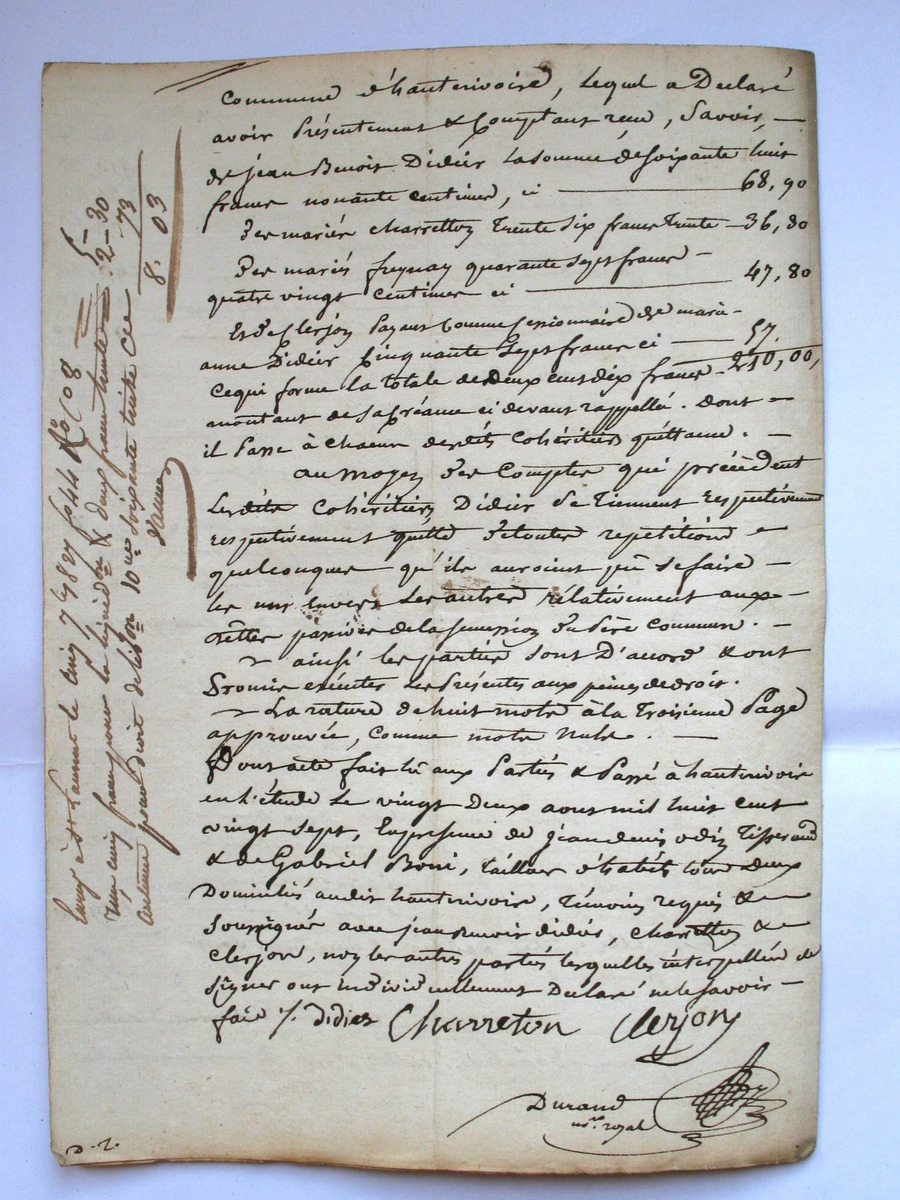 Commune d'hauterivoire, lequel a Declaré
avoir Présentement & Comptant reçu, Savoir, —
de jean Benoit Didier la somme de soixante huit
francs nonante centimes, ci — 68,90
Des mariés charretton trente six francs trente — 36,30
Des mariés freynay quarante sept francs —
quatre vingt centimes ci — 47,80
Et de Clerjon payant Comme Cessionnaire de marie
anne Didier Cinquante Sept francs ci — 57.
ce qui forme la totale de deux cent dix francs 210,00,
montant de sa Créance ci devant rappellée. Dont —
il Passe à chacun desdits Cohéritiers quittance. —
au moyen des Comptes qui précèdent
Lesdits Cohéritiers Didier se Tiennent respectivement
respectivement quitte de toutes repetitions —
quelconques qu'ils auroient pû se faire —
les uns Envers Les autres rélativement aux —
dettes passives de la succession du Père Commun. —
ainsi les parties sont D'accord & ont
Promis exécuter les Présentes aux peines de droit.
La rature de huit mots à la Troisieme Page
approuvée, comme mots nuls. —
Dont acte fait lû aux Parties & Passé à hauterivoire
en L'étude Le vingt Deux aout mil huit cent
vingt Sept, En presence de jean denis odin Tisserand
& de Gabriel Boni, tailleur d'habits tous deux
Domiciliés audit hauterivoire, Témoins requis &
Soussignés avec jean Benoit didier, Charretton &
Clerjon, non les autres parties lesquelles interpellées de
Signer ont individuellement Declaré ne le Savoir —
faire /. Didier Charreton Clerjon
Durand
no.re royal
D. r.
Enreg. à St Laurent le cinq 7bre 1827 f° 44 R° C 08
reçu cinq francs pour la liquid.on & deux francs trente 5–30
centimes pour droit de lib.on 10me soixante treize C.es 2–73
8. 03